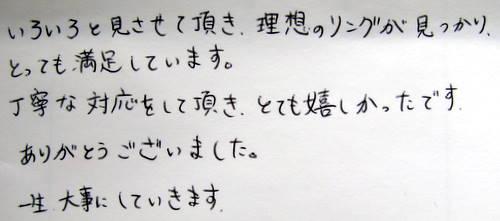 いろいろと見させて頂き、理想のリングが見つかり、
とっても満足しています。
丁寧な対応をして頂き、とても嬉しかったです。
ありがとうございました。
一生大事にしていきます。